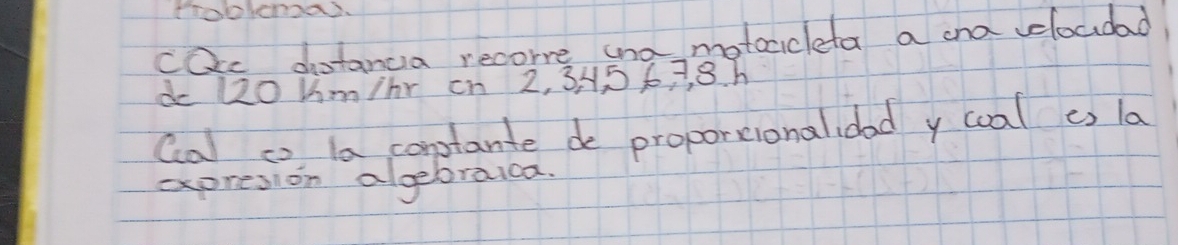 Problemas.
¿Que distancia recorre una motocicleta a una velocidad
de 120 Km/hr en 2,3,4,5,6,7,8.h
Cual es la constante de proporcionalidad y cual es la
expresión algebraica.